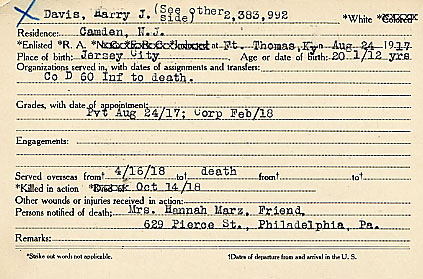 Davis, Harry J. (See other side) 2,383,992 *White *Colored
Residence: Camden, N.J.
*Enlisted *R. A. *N. G. *E. R. C. *Inducted at Ft. Thomas, Ky on Aug 24 1917
Place of birth: Jersey City Age or date of birth: 20 1/12 yrs
Organizations served in, with dates of assignments and transfers:
Co D 60 Inf to death.
Grades, with date of appointment:
Pvt Aug 24/17; Corp Feb/18
Engagements:
Served overseas from† 4/16/18 to† death from† to†
*Killed in action *Died of Oct 14/18
Other wounds or injuries received in action:
Persons notified of death: Mrs. Hannah Marz, Friend,
629 Pierce St., Philadelphia, Pa.
Remarks:
*Strike out words not applicable. †Dates of departure from and arrival in the U. S.